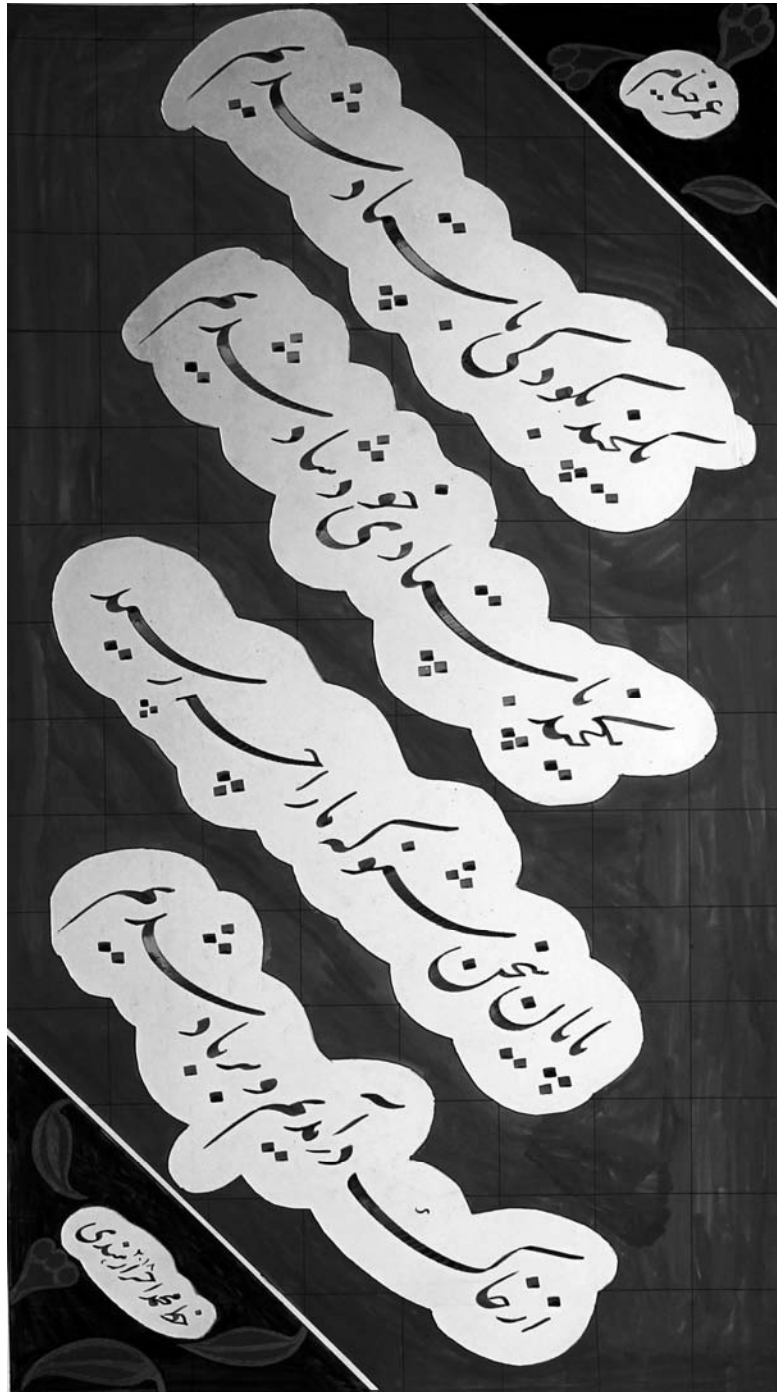 عمر خیام
یکچند بکودکی باستاد شدیم
یکچند باستادی خود شاد شدیم
پایان سخن شنو که ما را چه رسید
از خاک در آمدیم و بر باد شدیم
خط محمد احرار هندی ۲۰۱۸